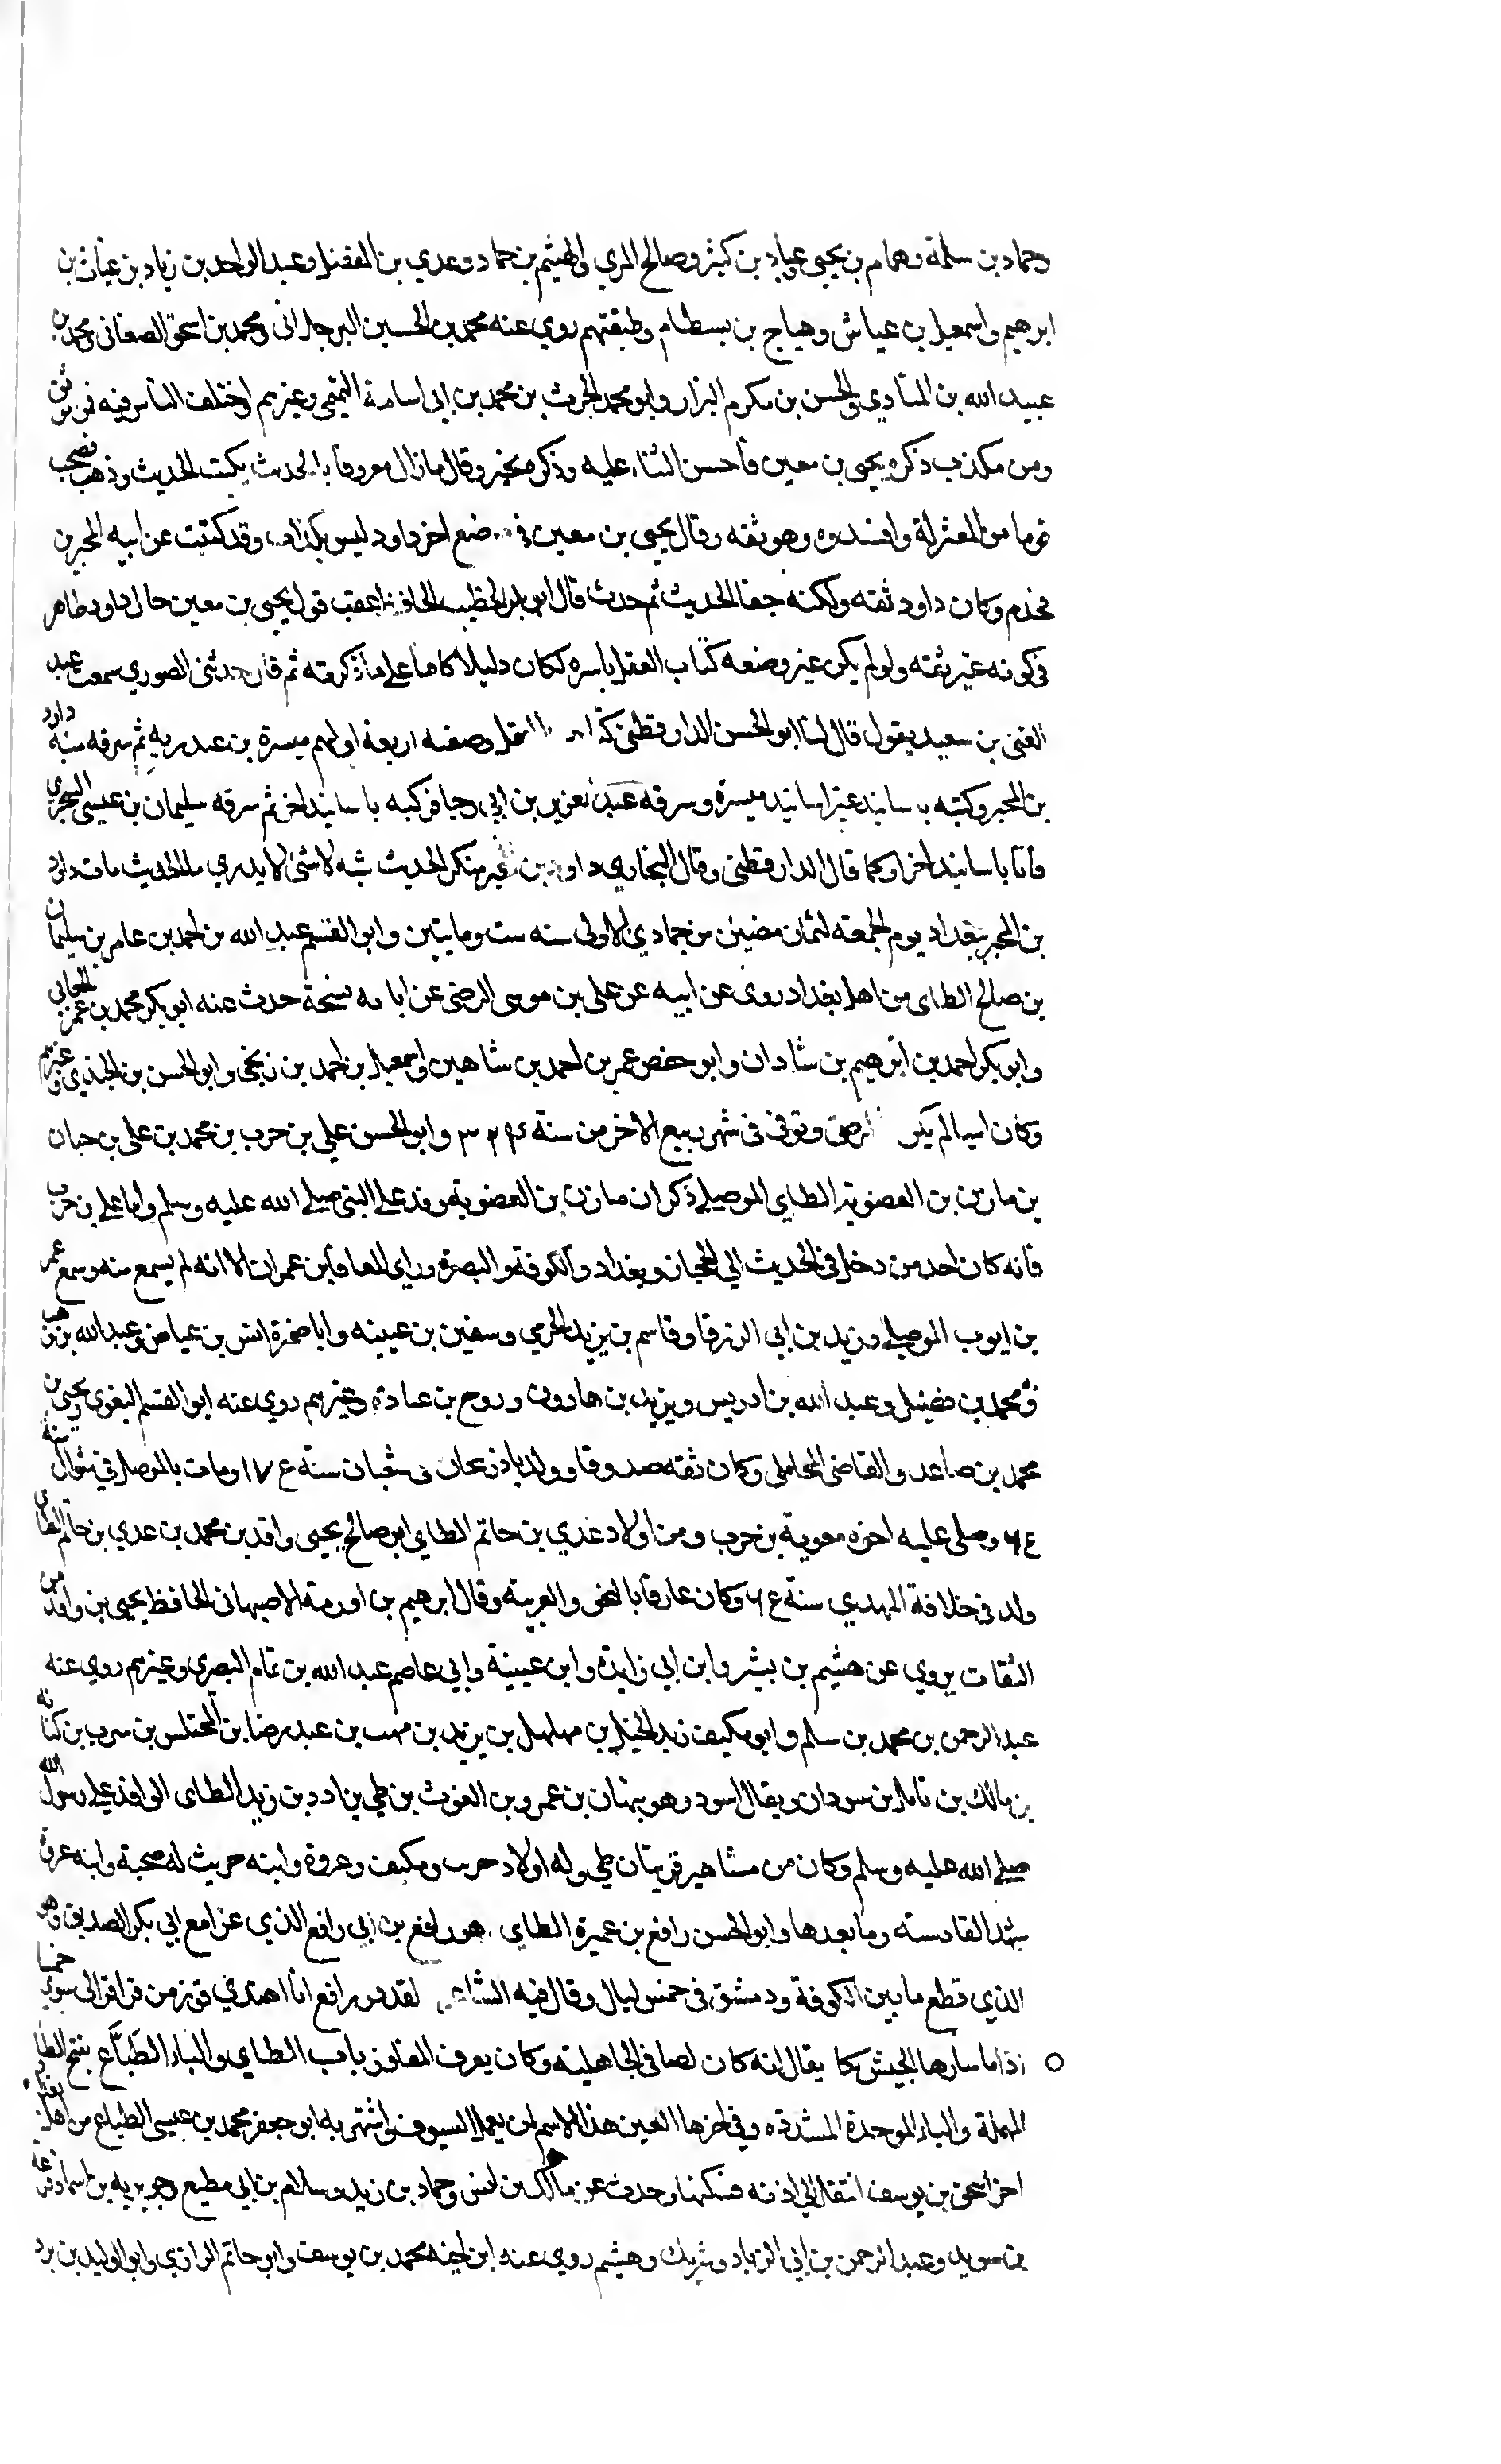 وحماد بن سلمة وهمام بن يحيى وعباد بن كثير وصالح المري والهيثم بن حماد وعدي بن الفضل وعبد الواحد بن زياد بن غياث بن
ابرهيم واسمعيل بن عياش وهياج بن بسطام وطبقتهم روي عنه محمد بن الحسين البرجلانى ومحمد بن اسحق الصغانى ومحمد بن
عبيد الله بن المنادي والحسن بن مكرم البزار وابو محمد الحرث بن محمد بن ابي اسامة التميمى وغيرهم واختلف الناس فيه فمن موثق
ومن مكذب ذكره يحيى بن معين فاحسن الثناء عليه وذكره بخير وقال ما زال معروفا بالحديث يكتب الحديث وذهب فصحب
قوما من المعتزلة وافسدوه وهو ثقه وقال يحيى بن معين فى موضع اخر داود ليس بكذاب وقد كتبت عن ابيه المحبر بن
قحذم وكان داود ثقه ولكنه جفا الحديث ثم حدث قال ابو بكر الخطيب الحافظ عقب قول يحيى بن معين حال داود ظاهر
فى كونه غير ثقه ولو لم يكن غير وضعه كتاب العقل باسره لكان دليلا كافيا على ما ذكرته ثم قال حدثنى الصوري سمعت عبد
الغنى بن سعيد يقول قال لنا ابو الحسن الدارقطنى كتاب العقل وضعه اربعة اولهم ميسرة بن عبد ربه ثم سرقه منه داود
بن المحبر وركبه باسانيد غير اسانيد ميسرة وسرقه عبد العزيز بن ابي رجا فركبه باسانيد اخر ثم سرقه سليمان بن عيسى السجزي
فاتا باسانيد اخر او كما قال الدارقطنى وقال البخاري داود بن المحبر منكر الحديث شبه لا شئ لا يدري ما الحديث مات داود
بن المحبر ببغداد يوم الجمعة لثمان مضين من جمادي الاولى سنه ست ومايتين وابو القسم عبد الله بن احمد بن عامر بن سليمان
بن صالح الطاى من اهل بغداد روى عن ابيه عن على بن موسى الرضى عن ابايه نسخة حدث عنه ابو بكر محمد بن عمر الجعابي
وابو بكر احمد بن ابرهيم بن شادان وابو حفص عمر بن احمد بن شاهين واسمعيل بن احمد بن زنجى وابو الحسن بن الجندي وغيرهم
وكان اميا لم يكن المرضى وتوفى فى شهر ربيع الاخر من سنة ٣٢٤ وابو الحسن علي بن حرب بن محمد بن على بن حبان
بن مازن بن الغضوبة الطاي الموصلي ذكر ان مازن بن الغضوبة وفد على النبى صلى الله عليه وسلم واما على بن حرب
فانه كان احد من رحل فى الحديث الي الحجاز وبغداد والكوفة والبصرة وراي المعافا بن عمران الا انه لم يسمع منه وسمع عمر
بن ايوب الموصلي وزيد بن ابي الزرقا وقاسم بن يزيد الجرمي وسفين بن عيينه وابا ضمرة انس بن عياض وعبد الله بن وهب
ومحمد بن فضيل وعبد الله بن ادريس ويزيد بن هارون وروح بن عبادة وغيرهم روي عنه ابو القسم البغوي ويحيى بن
محمد بن صاعد والقاضى المحاملى وكان ثقه صدوقا وولد باذربيجان فى شعبان سنة ١٧٤ ومات بالموصل فى شوال سنة
وصلى عليه اخوه معوية بن حرب ومن اولاد عدي بن حاتم الطاي ابو صالح يحيى واقد بن محمد بن عدي بن حاتم الطاي
ولد فى خلافة المهدي سنة وكان عارفا بالنحو والعربية وقال ابرهيم بن اورمة الاصبهانى الحافظ يحيى بن واقد من
الثقات يروي عن هشيم بن بشير وابن ابي زايدة وابن عيينة وابي عاصم عبد الله بن تمام البصري وغيرهم روي عنه
عبد الرحمن بن محمد بن سلم وابو مكيف زيد الخيل بن مهلهل بن يزيد بن منهب بن عبد رضا بن المختلس بن سرب بن كنانه
بن مالك بن نابل بن سودان ويقال اسود وهو نبهان بن عمرو بن الغوث بن طي بن ادد بن زيد الطاى الوافد علي رسول الله
صلي الله عليه وسلم وكان من مشاهير فرسان طي وله اولاد حرب ومكيف وعروة وابنه حريث له صحبة وابنه عروة
شهد القادسيه وما بعدها وابو الحسن رافع بن عميرة الطاي هو رافع بن ابي رافع الذي غزا مع ابي بكر الصديق وهو
الذي قطع ما بين الكوفة ودمشق فى خمس ليال وقال فيه الشاعر لقد در رافع انا اهتدي فوز من قراقر الى سوي خمسا
اذا ما سارها الجيش بكا يقال انه كان لصا فى الجاهلية وكان يعرف المفاوز باب الطاي والباء الطبَّاع بفتح الطا
المهملة والباء الموحدة المشددة وفي اخرها العين هذا الاسم لمن يعمل السيوف واشتهر به ابو جعفر محمد بن عيسى الطباع من اهل بغداد
اخو اسحق بن يوسف انتقل الي اذنه فسكنها وحدث عن مالك بن انس وحماد بن زيد وسلام بن ابي مطيع وجويريه بن اسما وفرعة
بن سويد وعبد الرحمن بن ابي الزناد وشريك وهشيم روي عنه ابن اخيه محمد بن يوسف وابو حاتم الرازي وابو الوليد بن برد